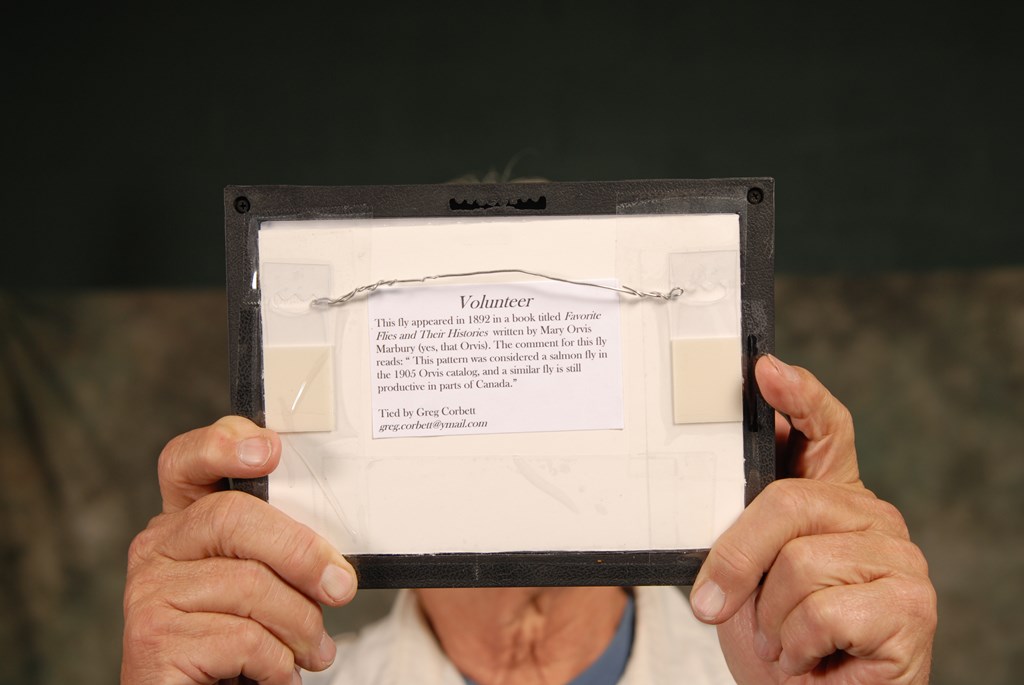 Volunteer
This fly appeared in 1892 in a book titled Favorite
Flies and Their Histories written by Mary Orvis
Marbury (yes, that Orvis). The comment for this fly
reads: “ This pattern was considered a salmon fly in
the 1905 Orvis catalog, and a similar fly is still
productive in parts of Canada.”
Tied by Greg Corbett
greg.corbett@ymail.com